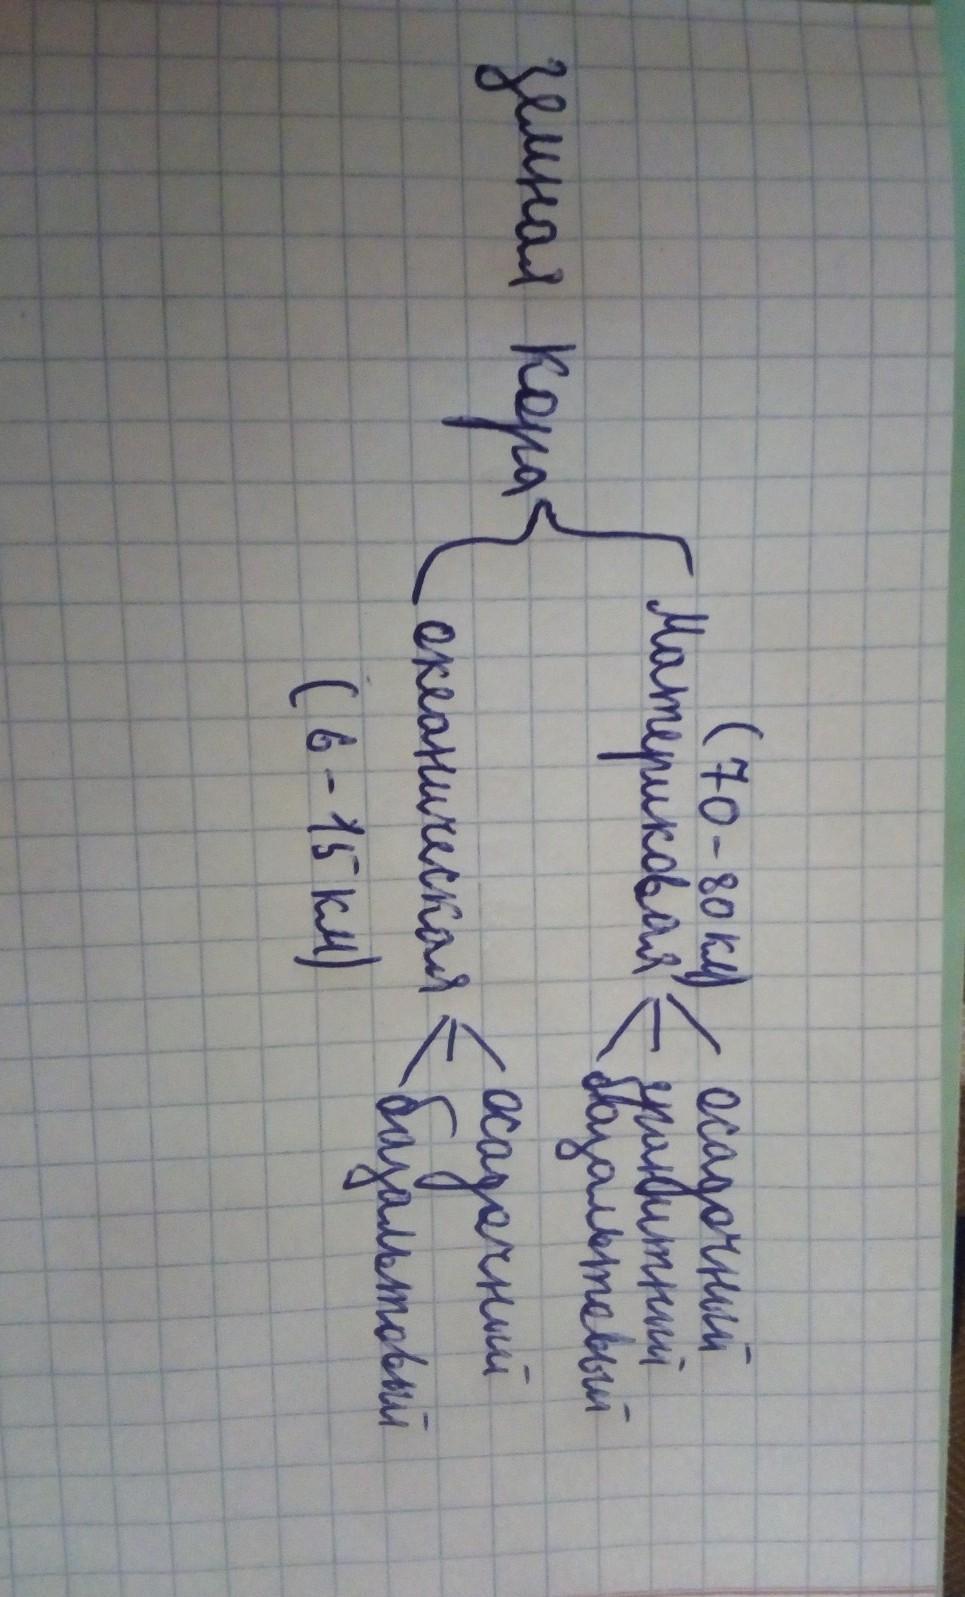 (70-80 км)
Материковая
осадочный
гранитный
базальтовый
земная кора
океаническая
(6-15 км)
осадочный
базальтовый